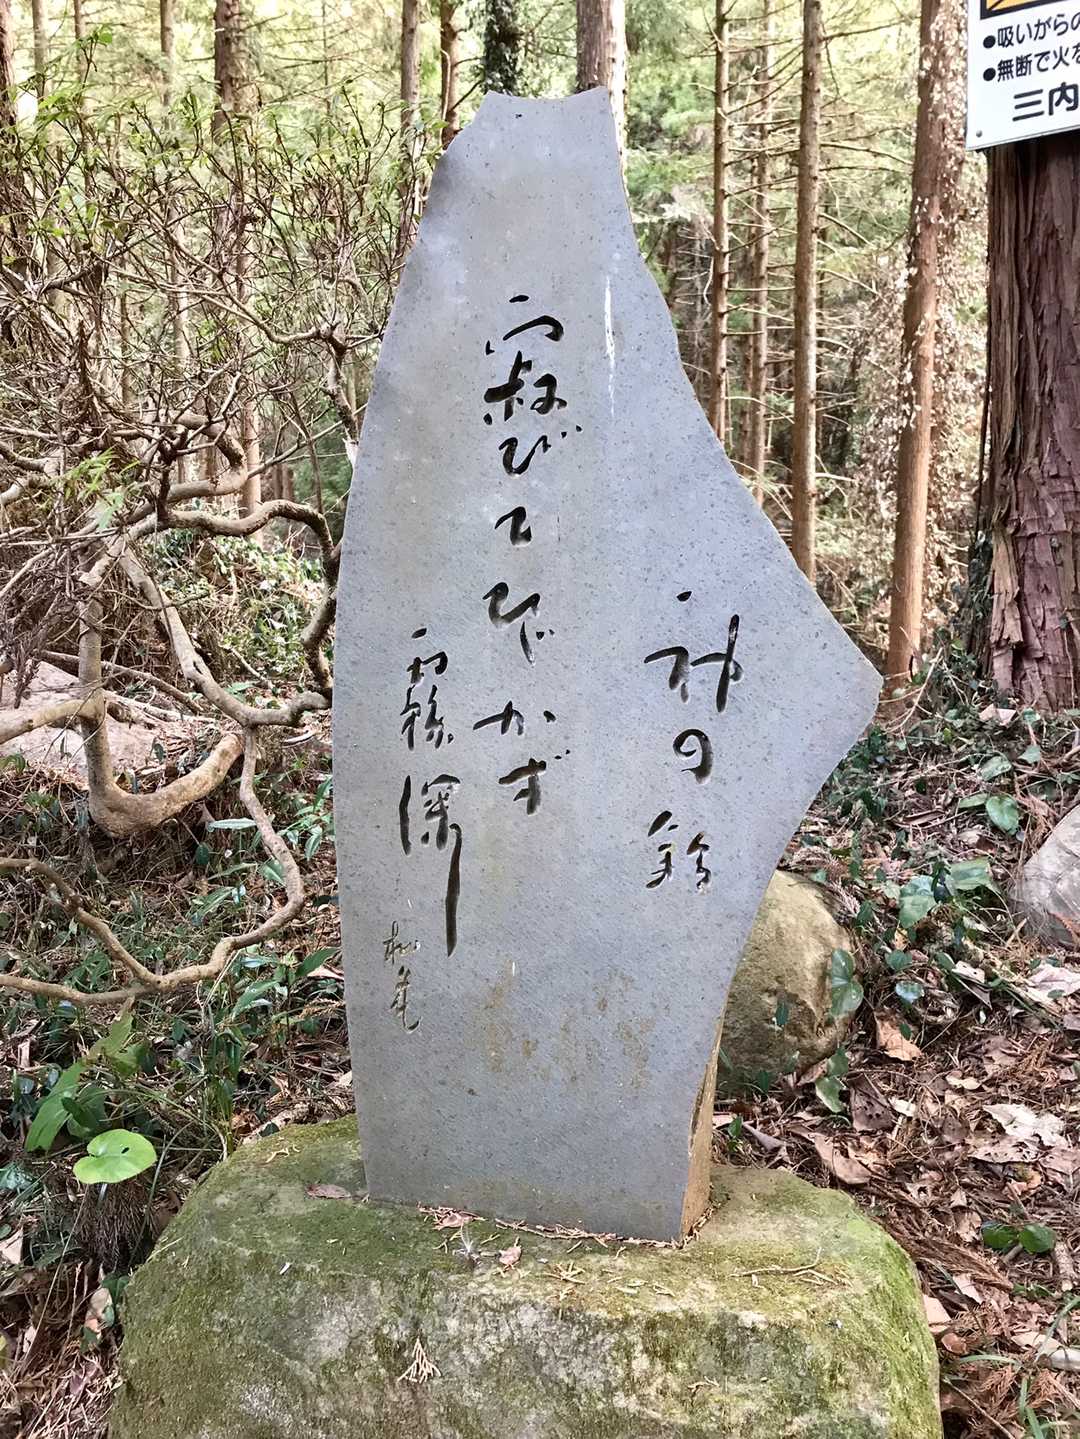 ●吸いがらの
●無断で火を
三内
神の鈴
寂びてひゞかず
霧深し